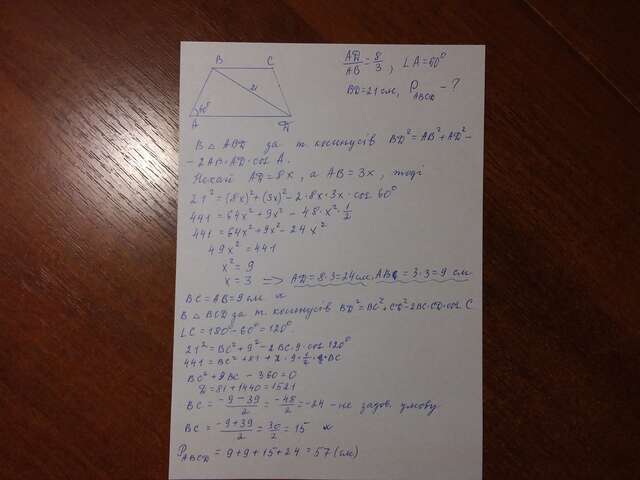 B C
AD/AB = 8/3, ∠A=60°
21
BD=21 см, P_ABCD - ?
60°
A D
В △ ABD за т. косинусів BD²=AB²+AD²-
- 2AB·AD·cos A.
Нехай AD=8x, а AB=3x, тоді
21²=(8x)²+(3x)²-2·8x·3x·cos 60°
441=64x²+9x²-48·x²·1/2
441=64x²+9x²-24x²
49x²=441
x²=9
x=3 => AD=8·3=24см, AB=3·3=9 см
BC=AB=9см х
В △ BCD за т. косинусів BD²=BC²+CD²-2BC·CD·cos C
∠C=180°-60°=120°.
21²=BC²+9²-2BC·9·cos120°
441=BC²+81+2·9·1/2·BC
BC²+9BC-360=0
D=81+1440=1521
BC=(-9-39)/2=-48/2=-24 - не задов. умову
BC=(-9+39)/2=30/2=15 х
P_ABCD=9+9+15+24=57(см)